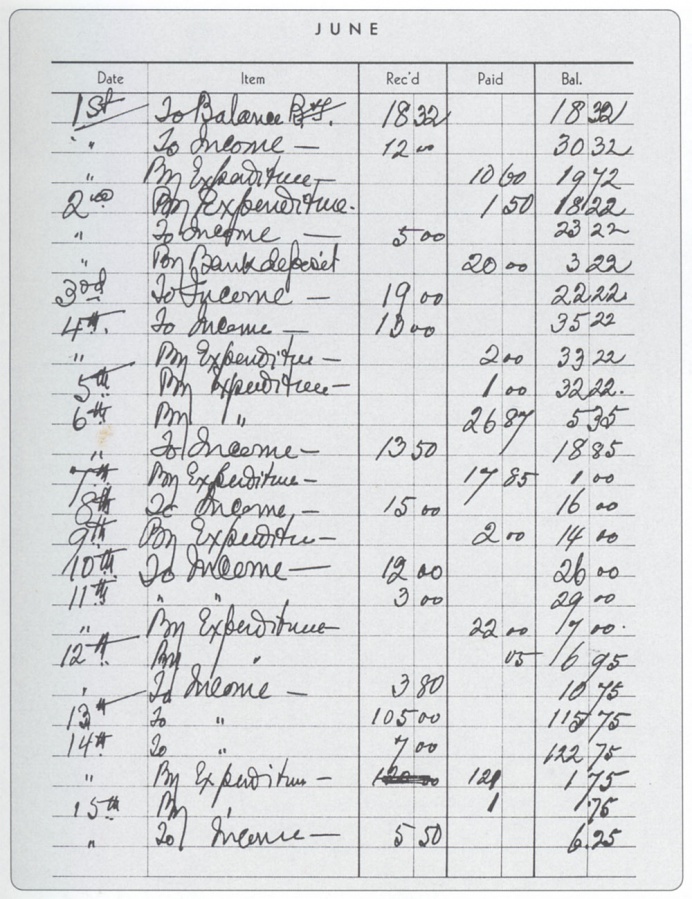 JUNE
Date Item Rec'd Paid Bal.
1st To Balance B/f. 18 32 18 32
" To Income — 12 00 30 32
" By Expenditure — 10 60 19 72
2nd By Expenditure. 1 50 18 22
" To Income — 5 00 23 22
" By Bank deposit 20 00 3 22
3rd To Income — 19 00 22 22
4th. To Income — 13 00 35 22
" By Expenditure — 2 00 33 22
5th By Expenditure — 1 00 32 22.
6th By " 26 87 5 35
" To Income — 13 50 18 85
7th By Expenditure — 17 85 1 00
8th To Income — 15 00 16 00
9th By Expenditure — 2 00 14 00
10th To Income — 12 00 26 00
11th " " 3 00 29 00
" By Expenditure 22 00 7 00.
12th By " 05 6 95
" To Income — 3 80 10 75
13th To " 105 00 115 75
14th To " 7 00 122 75
" By Expenditure — 121 1 75
15th By " 1 75
" To Income — 5 50 6.25